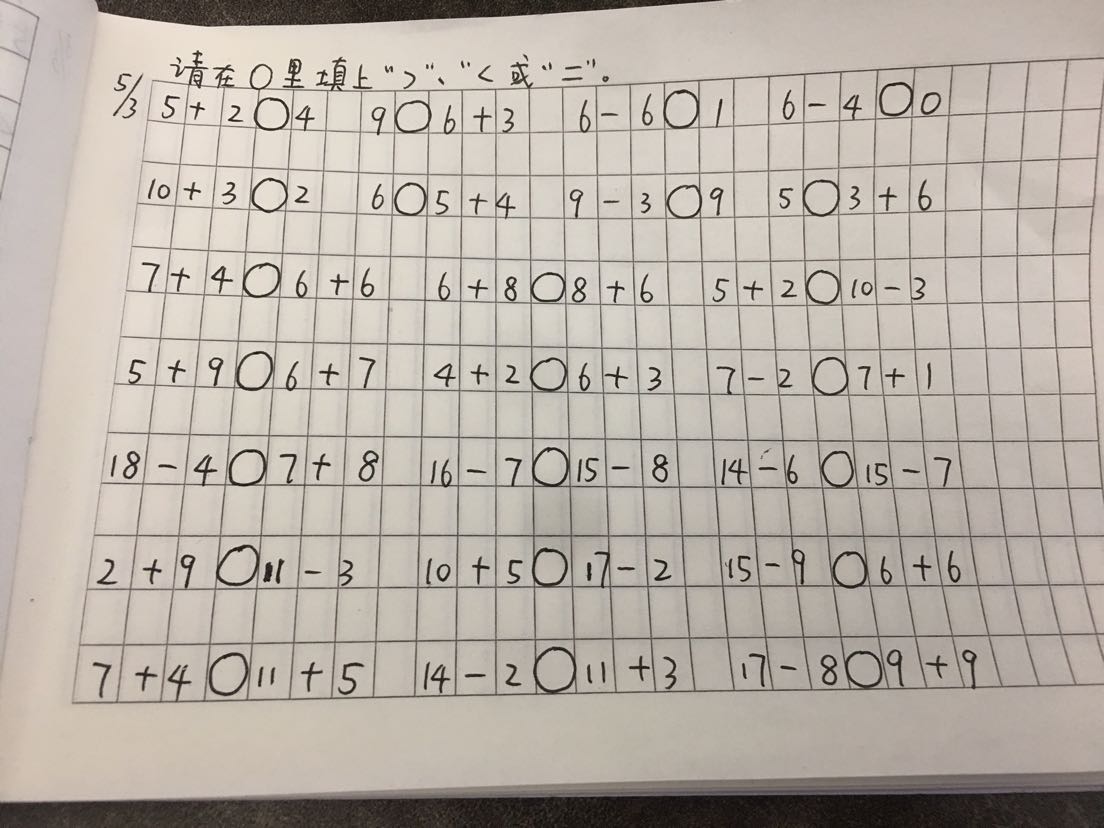 请在○里填上“>”、“<或“=”。
5/3
5+2○4 9○6+3 6-6○1 6-4○0
10+3○2 6○5+4 9-3○9 5○3+6
7+4○6+6 6+8○8+6 5+2○10-3
5+9○6+7 4+2○6+3 7-2○7+1
18-4○7+8 16-7○15-8 14-6○15-7
2+9○11-3 10+5○17-2 15-9○6+6
7+4○11+5 14-2○11+3 17-8○9+9